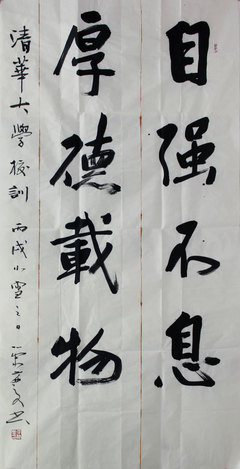 自强不息
厚德載物
清華大學校訓 丙戌小雪之日